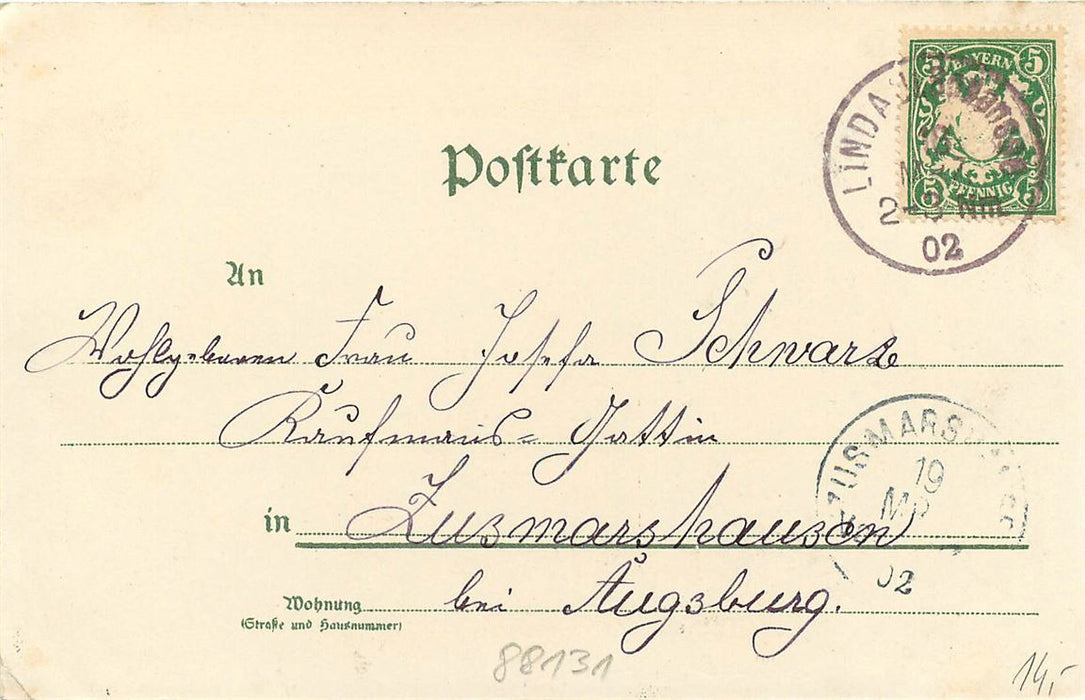 5 BAYERN 5
5 PFENNIG 5
LINDAU
2-3 Nm.
02
Postkarte
An
Wohlgeboren Frau Josefa Schwarz
Kaufmans= Gattin
ZUSMARSH
19
02
in Zusmarshausen
Wohnung bei Augsburg.
(Straße und Hausnummer)
88131
14,-